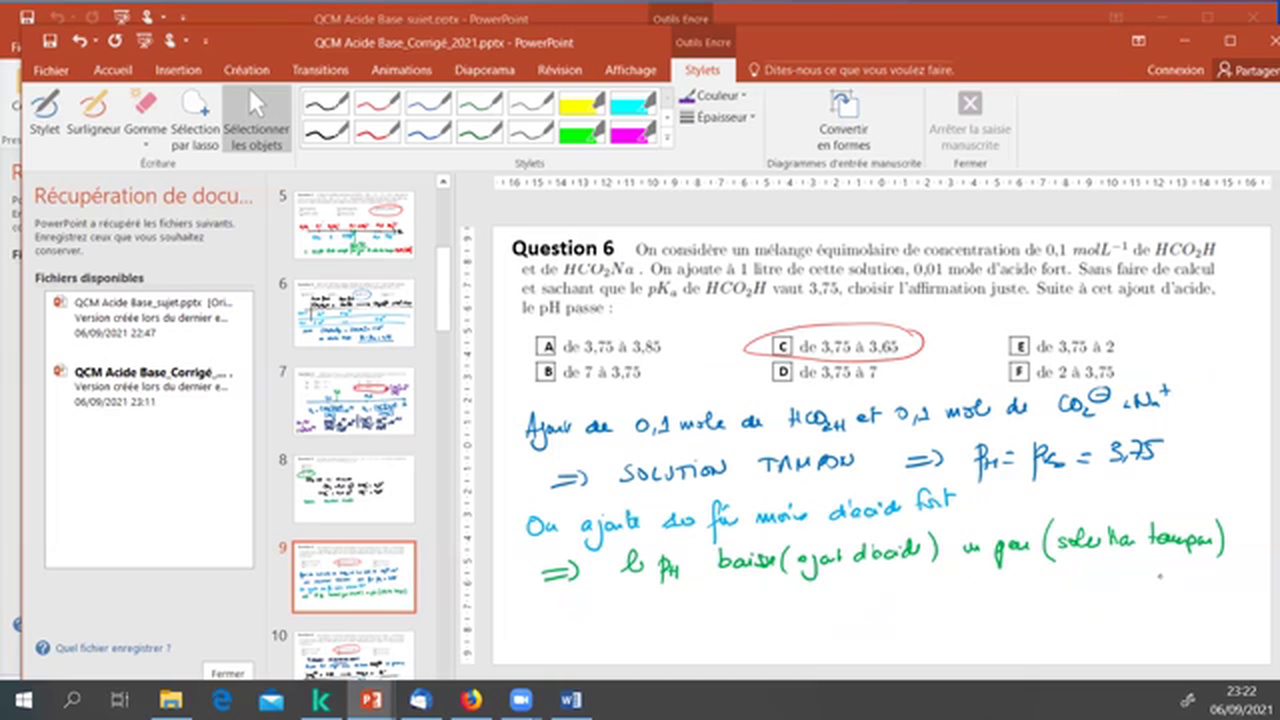 QCM Acide Base_sujet.pptx - PowerPoint
Outils Encre
QCM Acide Base_Corrigé_2021.pptx - PowerPoint
Outils Encre
Fichier Accueil Insertion Création Transitions Animations Diaporama Révision Affichage Stylets Dites-nous ce que vous voulez faire. Connexion Partager
Stylet Surligneur Gomme Sélection par lasso Sélectionner les objets
Écriture
Stylets
Couleur
Épaisseur
Convertir en formes
Diagrammes d'entrée manuscrite
Arrêter la saisie manuscrite
Fermer
Récupération de docu...
PowerPoint a récupéré les fichiers suivants.
Enregistrez ceux que vous souhaitez
conserver.
Fichiers disponibles
QCM Acide Base_sujet.pptx [Ori...
Version créée lors du dernier e...
06/09/2021 22:47
QCM Acide Base_Corrigé_... .
Version créée lors du dernier e...
06/09/2021 23:11
Quel fichier enregistrer ?
Fermer
5
6
7
8
9
10
16 15 14 13 12 11 10 9 8 7 6 5 4 3 2 1 0 1 2 3 4 5 6 7 8 9 10 11 12 13 14 15 16
Question 6 On considère un mélange équimolaire de concentration de 0,1 molL⁻¹ de HCO₂H
et de HCO₂Na . On ajoute à 1 litre de cette solution, 0,01 mole d'acide fort. Sans faire de calcul
et sachant que le pKₐ de HCO₂H vaut 3,75, choisir l'affirmation juste. Suite à cet ajout d'acide,
le pH passe :
A de 3,75 à 3,85 C de 3,75 à 3,65 E de 3,75 à 2
B de 7 à 3,75 D de 3,75 à 7 F de 2 à 3,75
Ajout de 0,1 mole de HCO₂H et 0,1 mol de CO₂⊖ , Na⁺
=> SOLUTION TAMPON => pH = pKa = 3,75
On ajoute dix fois moins d'acide fort
=> le pH baisse (ajout d'acide) un peu (solution tampon)
23:22
06/09/2021